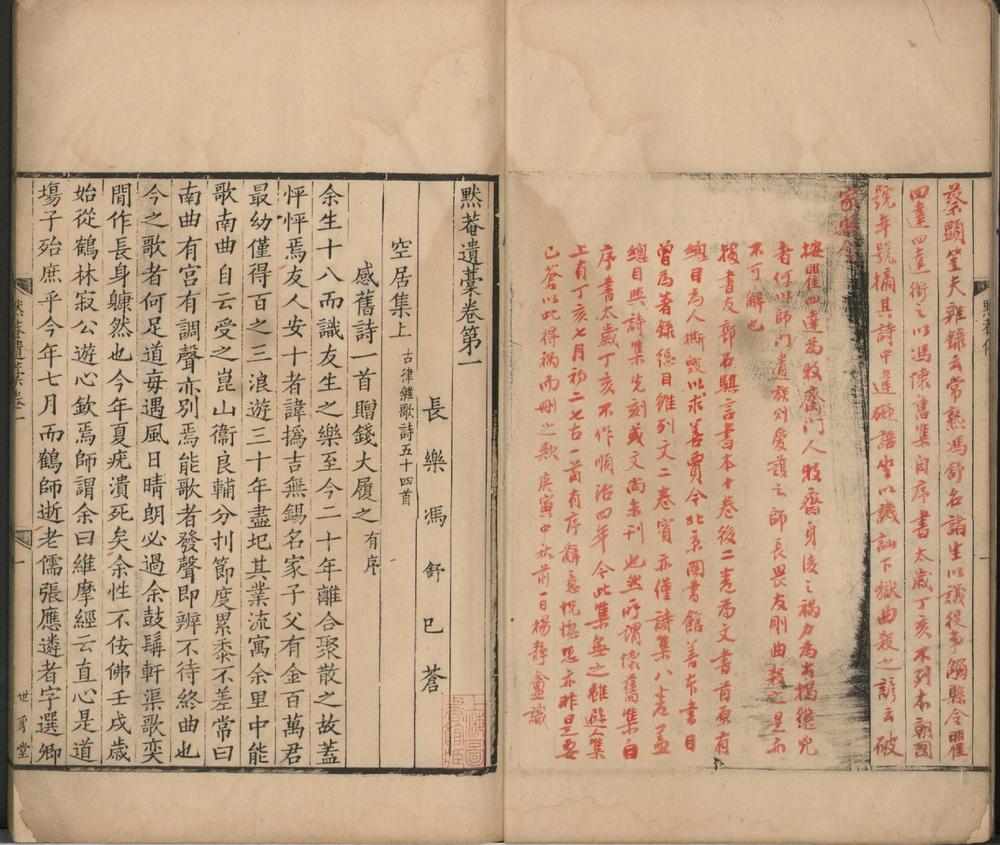 蔡顯笠夫雜錄云常熟馮舒名諸生以議役事觸縣令瞿
四達四達銜之以馮懷舊集自序書太歲丁亥不列本朝國
號年號摘其詩中違礙語坐以譏訕下獄曲殺之諺云破
家縣令
按瞿四達為牧齋門人牧齋身後之禍力為
者何以師門遺族則愛護之師長畏友則曲殺之是亦
不可解也
書友郭石騏言書本十卷後二卷為文書首原有
總目為人撕毀以求善賈今北京圖書館善本書目
曾為著錄總目雖列文二卷實亦僅詩集八卷蓋
總目與詩集先刻成文尚未刊也然所謂懷舊集曰
序書太歲丁亥不作順治四年今此集無之惟集
上有丁亥七月初二七古一首有序辭意恍惚恐亦非是要
已蒼以此得禍而刪之歟庚寅中秋前一日楊靜盦識
默菴
默菴遺藁卷第一
長樂馮舒已蒼
空居集上 古律雜歌詩五十四首
感舊詩一首贈錢大履之 有序
余生十八而識友生之樂至今二十年離合聚散之故蓋
怦怦焉友人安十者諱撝吉無錫名家子父有金百萬君
最幼僅得百之三浪遊三十年盡圮其業流寓余里中能
歌南曲自云受之崑山衞良輔分刌節度累黍不差常曰
南曲有宮有調聲亦別焉能歌者發聲即辨不待終曲也
今之歌者何足道每遇風日晴朗必過余鼓鬍軒渠歌奕
閒作長身鬑然也今年夏疣潰死矣余性不佞佛壬戌歲
始從鶴林寂公遊心欽焉師謂余曰維摩經云直心是道
塲子殆庶乎今年七月而鶴師逝老儒張應遴者字選卿
默菴遺藁卷一
一
世豸堂
上海圖書館藏